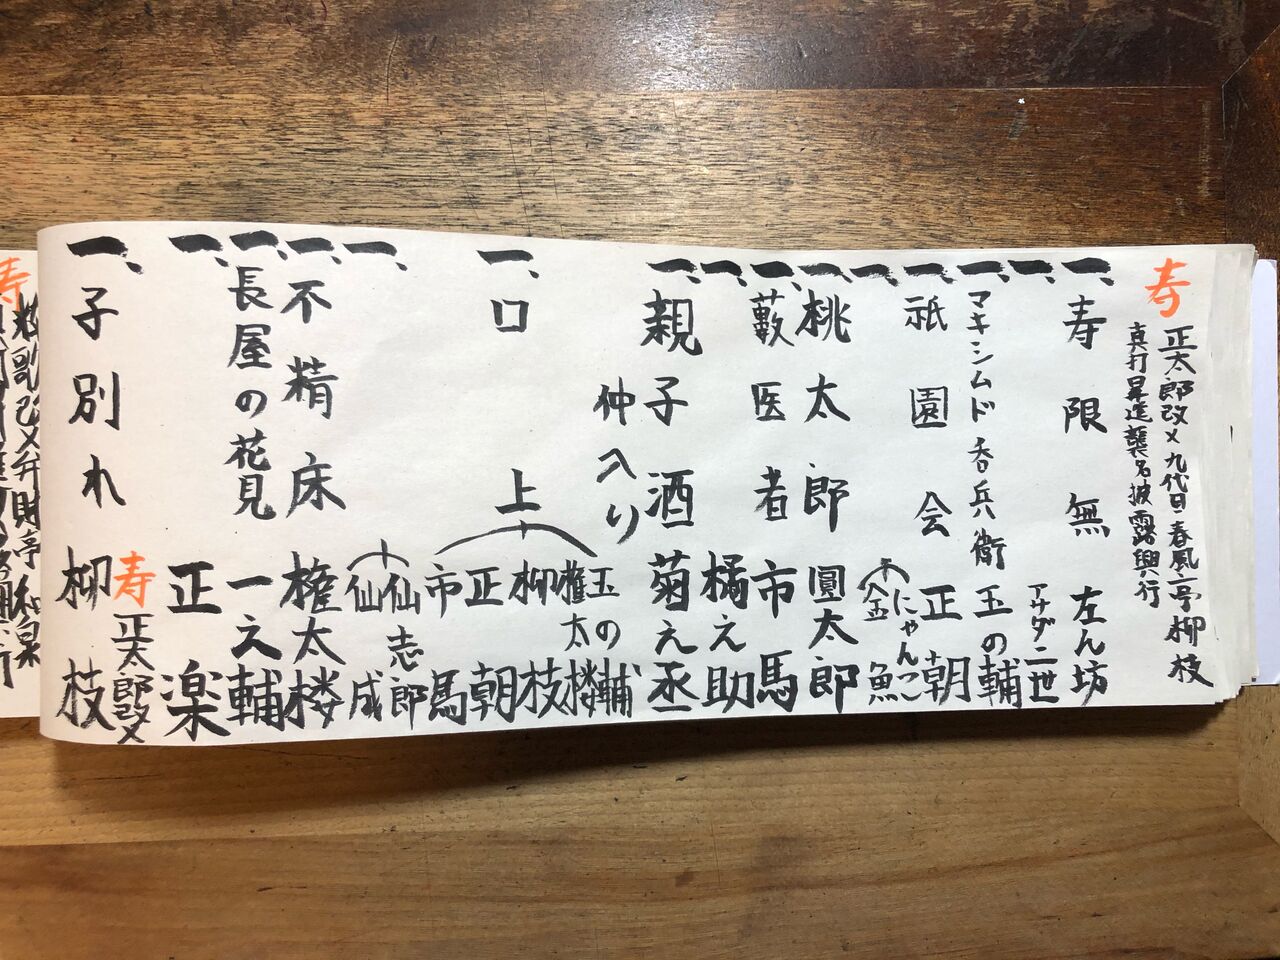 寿
正太郎改メ九代目春風亭柳枝
真打昇進襲名披露興行
一、寿限無 左ん坊
一、アサダ二世
一、マキシムド呑兵衛 玉の輔
一、祇園会 正朝
一、にゃんこ 金魚
一、桃太郎 圓太郎
一、藪医者 市馬
一、橘之助
一、親子酒 菊之丞
仲入り
一、口上 玉の輔 権太楼 柳枝 正朝 市馬
一、仙志郎 仙成
一、不精床 権太楼
一、長屋の花見 一之輔
一、正楽
寿 正太郎改メ
一、子別れ 柳枝
寿